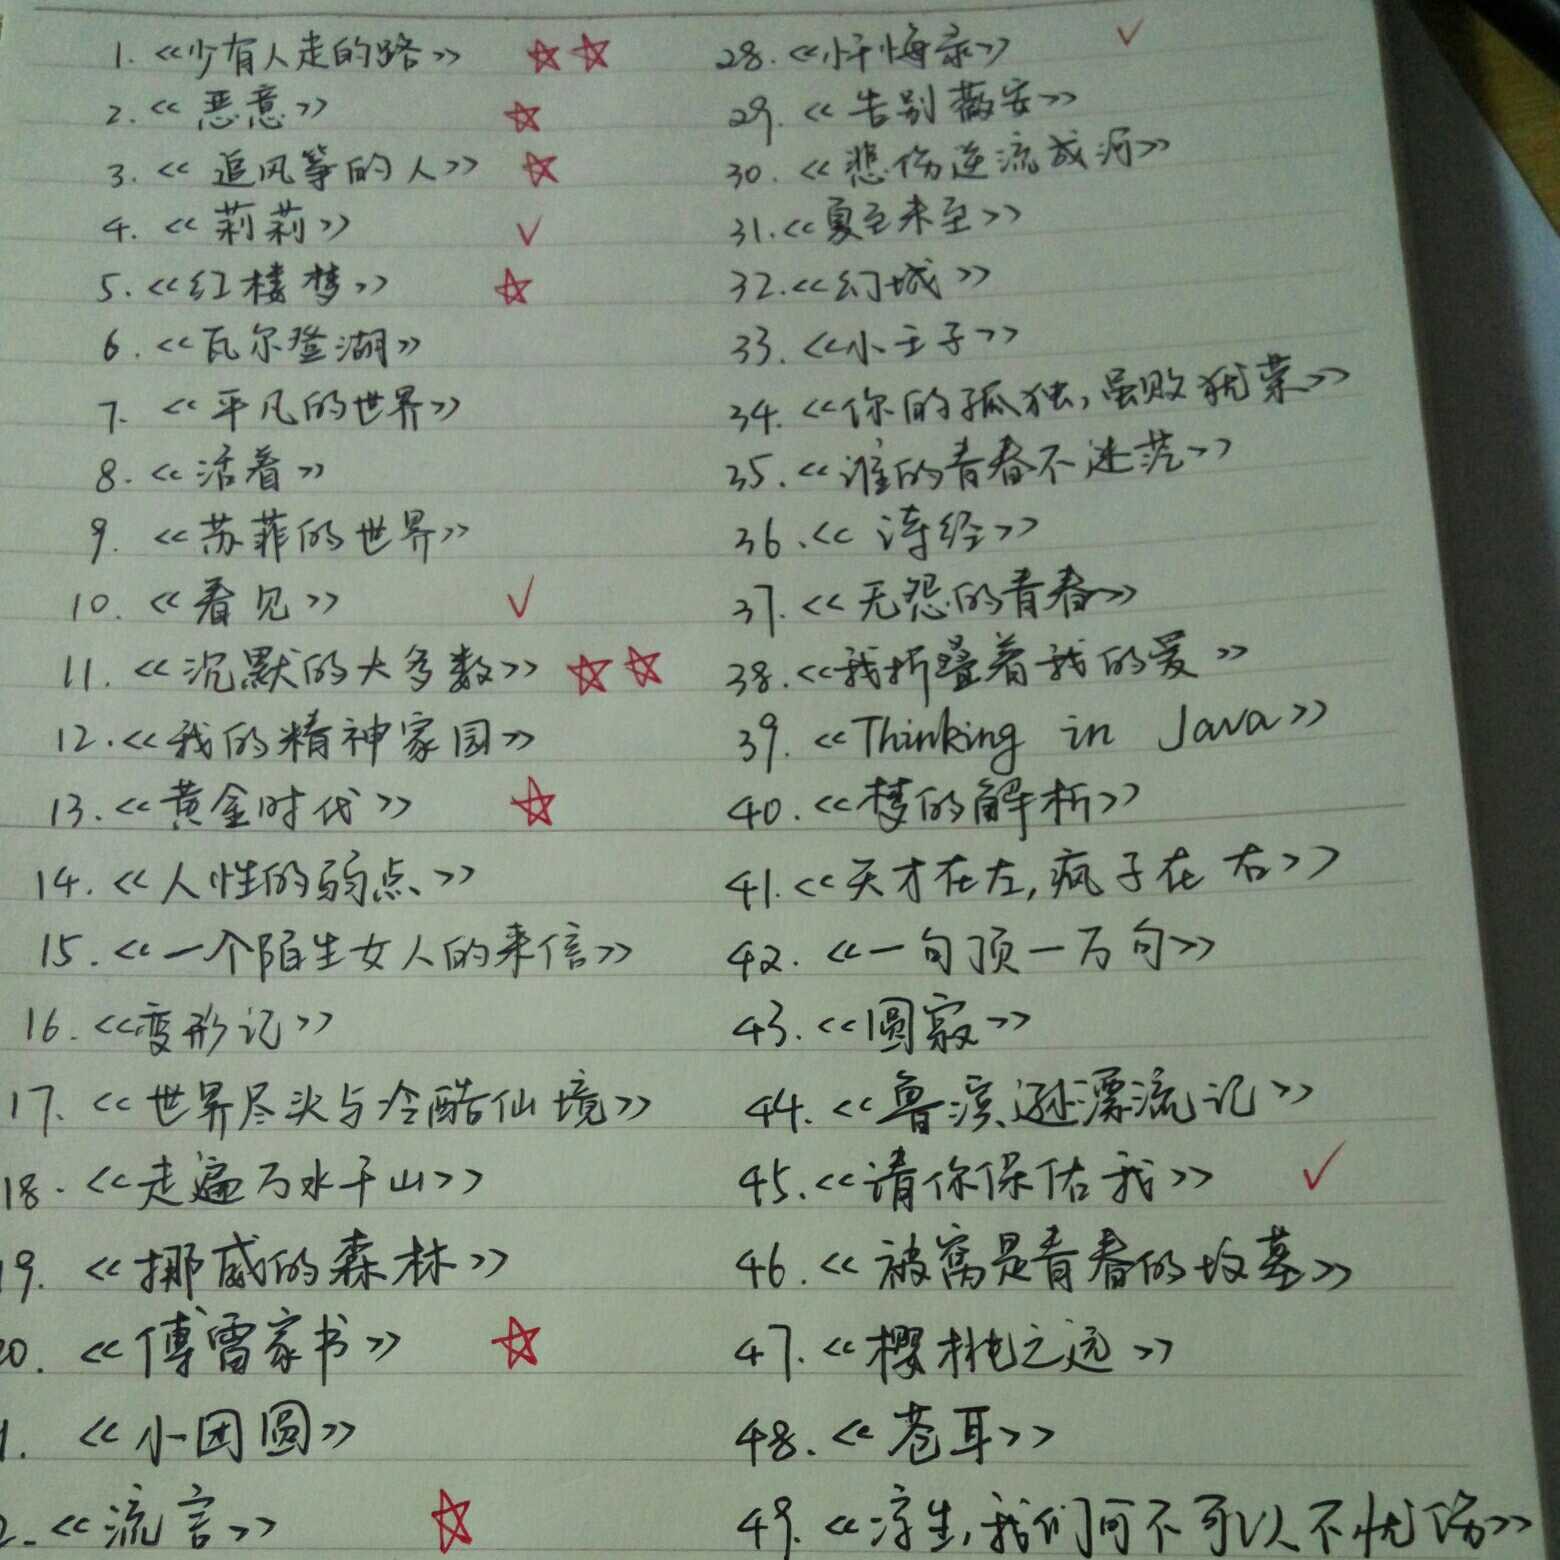 1. 《少有人走的路》 ☆☆
2. 《恶意》 ☆
3. 《追风筝的人》 ☆
4. 《莉莉》 ✓
5. 《红楼梦》 ☆
6. 《瓦尔登湖》
7. 《平凡的世界》
8. 《活着》
9. 《苏菲的世界》
10. 《看见》 ✓
11. 《沉默的大多数》 ☆☆
12. 《我的精神家园》
13. 《黄金时代》 ☆
14. 《人性的弱点》
15. 《一个陌生女人的来信》
16. 《变形记》
17. 《世界尽头与冷酷仙境》
18. 《走遍万水千山》
19. 《挪威的森林》
20. 《傅雷家书》 ☆
1. 《小团圆》
2. 《流言》 ☆
28. 《忏悔录》 ✓
29. 《告别薇安》
30. 《悲伤逆流成河》
31. 《夏至未至》
32. 《幻城》
33. 《小王子》
34. 《你的孤独,虽败犹荣》
35. 《谁的青春不迷茫》
36. 《诗经》
37. 《无怨的青春》
38. 《我折叠着我的爱》
39. 《Thinking in Java》
40. 《梦的解析》
41. 《天才在左,疯子在右》
42. 《一句顶一万句》
43. 《圆寂》
44. 《鲁滨逊漂流记》
45. 《请你保佑我》 ✓
46. 《被窝是青春的坟墓》
47. 《樱桃之远》
48. 《苍耳》
49. 《浮生,我们可不可以不忧伤》